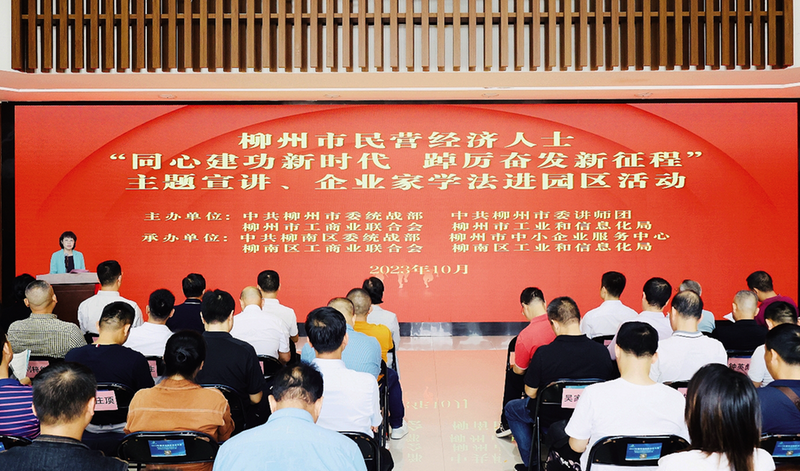 柳州市民营经济人士
“同心建功新时代 踔厉奋发新征程”
主题宣讲、企业家学法进园区活动
主办单位：中共柳州市委统战部 中共柳州市委讲师团
柳州市工商业联合会 柳州市工业和信息化局
承办单位：中共柳南区委统战部 柳州市中小企业服务中心
柳南区工商业联合会 柳南区工业和信息化局
2023年10月